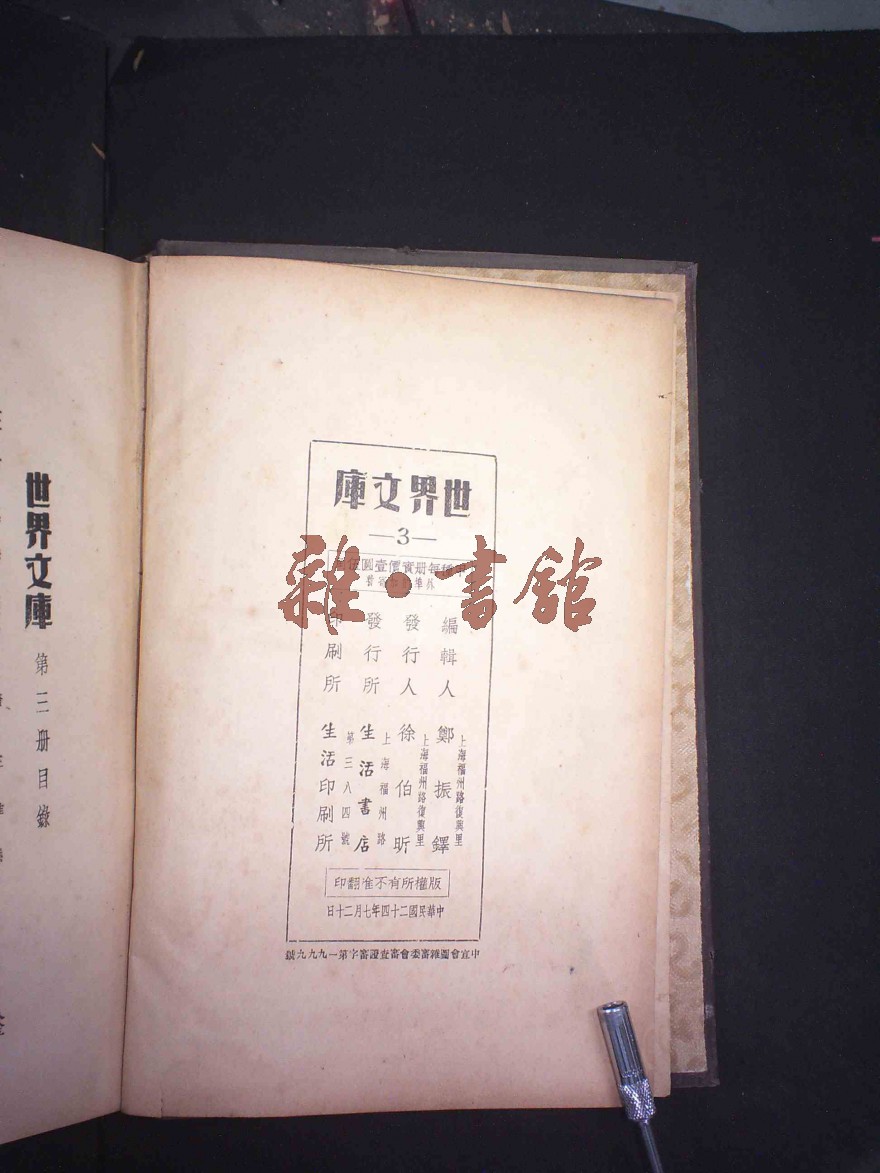 世界文庫
—3—
每册實價壹圓
編輯人 鄭振鐸
上海福州路復興里
發行人 徐伯昕
上海福州路復興里
發行所 生活書店
上海福州路
第三八四號
印刷所 生活印刷所
版權所有不准翻印
中華民國二十四年七月二十日
中宣會圖雜審委會審查證審字第一九九九號
世界文庫 第三册目錄
雜·書館